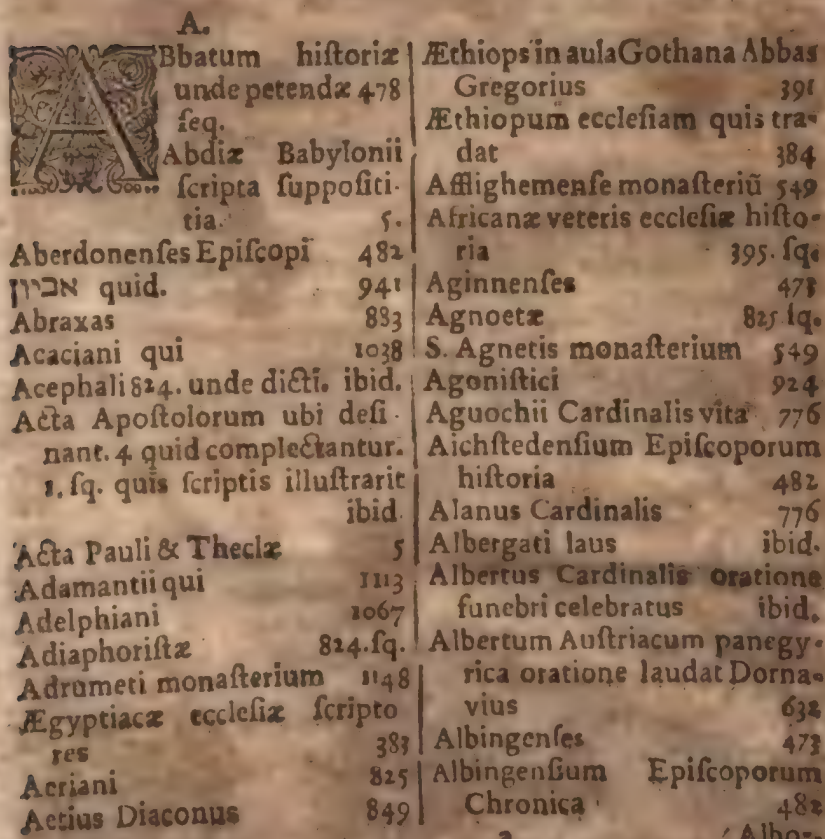 A.
ABbatum hiſtoriæ
unde petendæ 478
ſeq.
Abdiæ Babylonii
ſcripta ſuppoſiti-
tia. 5.
Aberdonenſes Epiſcopi 482
אביון quid. 941
Abraxas 883
Acaciani qui 1038
Acephali 824. unde dicti. ibid.
Acta Apoſtolorum ubi deſi-
nant. 4 quid complectantur.
1. ſq. quis ſcriptis illuſtrarit
ibid.
Acta Pauli & Theclæ 5
Adamantii qui 1113
Adelphiani 1067
Adiaphoriſtæ 824.ſq.
Adrumeti monaſterium 1148
Ægyptiacæ eccleſiæ ſcripto
res 383
Aeriani 825
Aetius Diaconus 849
Æthiops in aula Gothana Abbas
Gregorius 391
Æthiopum eccleſiam quis tra-
dat 384
Afflighemenſe monaſteriũ 549
Africanæ veteris eccleſiæ hiſto-
ria 395. ſq.
Aginnenſes 473
Agnoetæ 825 ſq.
S. Agnetis monaſterium 549
Agoniſtici 924
Aguochii Cardinalis vita 776
Aichſtedenſium Epiſcoporum
hiſtoria 482
Alanus Cardinalis 776
Albergati laus ibid.
Albertus Cardinalis oratione
funebri celebratus ibid.
Albertum Auſtriacum panegy-
rica oratione laudat Dorna-
vius 632
Albingenſes 473
Albingenſium Epiſcoporum
Chronica 482
a